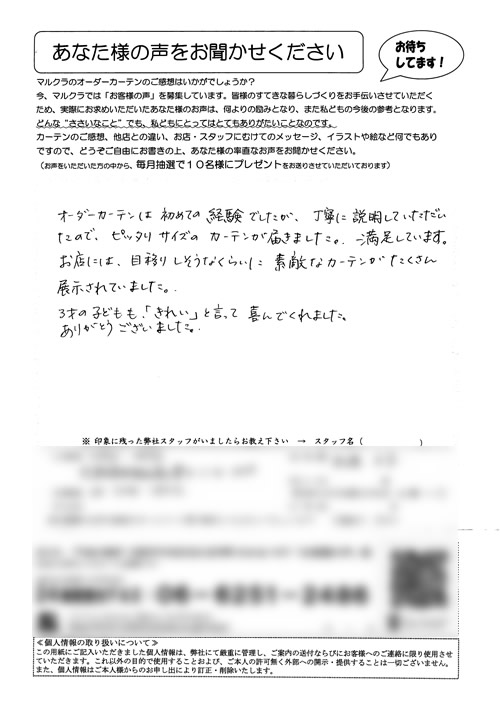 あなた様の声をお聞かせください
お待ち
してます！
マルクラのオーダーカーテンのご感想はいかがでしょうか？
今、マルクラでは「お客様の声」を募集しています。皆様のすてきな暮らしづくりをお手伝いさせていただく
ため、実際にお求めいただいたあなた様のお声は、何よりの励みとなり、また私どもの今後の参考となります。
どんな“ささいなこと”でも、私どもにとってはとてもありがたいことなのです。
カーテンのご感想、他店との違い、お店・スタッフにむけてのメッセージ、イラストや絵など何でもあり
ですので、どうぞご自由にお書きの上、あなた様の率直なお声をお聞かせください。
（お声をいただいた方の中から、毎月抽選で１０名様にプレゼントをお送りさせていただいております）
オーダーカーテンは初めての経験でしたが、丁寧に説明していただい
たので、ピッタリサイズのカーテンが届きました。満足しています。
お店には、目移りしそうなくらいに素敵なカーテンがたくさん
展示されていました。
3才の子どもも、「きれい」と言って喜んでくれました。
ありがとうございました。
※ 印象に残った弊社スタッフがいましたらお教え下さい → スタッフ名（　　　　　　）
06-6251-2486
≪個人情報の取り扱いについて≫
この用紙にご記入いただきました個人情報は、弊社にて厳重に管理し、ご案内の送付ならびにお客様へのご連絡に限り使用させ
ていただきます。これ以外の目的で使用することおよび、ご本人の許可無く外部への開示・提供することは一切ございません。
また、個人情報はご本人様からのお申し出により訂正・削除いたします。